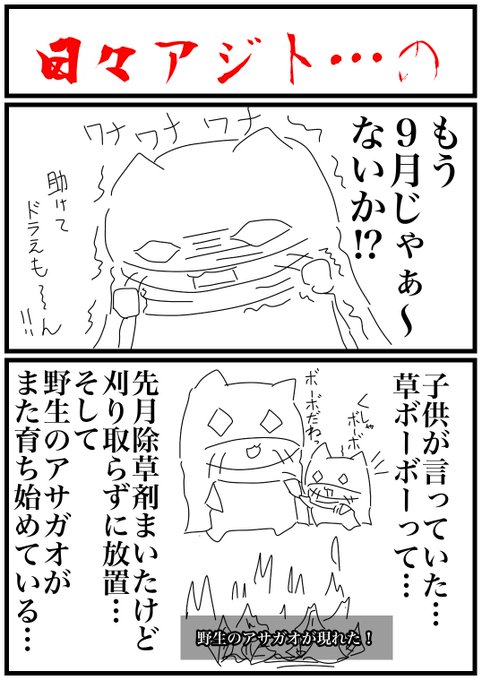 日々アジト…の
もう
９月じゃぁ～
ないか⁉
ワナ
ワナ
ワナ
助けて
ドラえも～ん
!!
子供が言っていた…
草ボーボーって…
ボーボーだね
くしゃ
ボーボー
先月除草剤まいたけど
刈り取らずに放置…
そして
野生のアサガオが
また育ち始めている…
野生のアサガオが現れた！